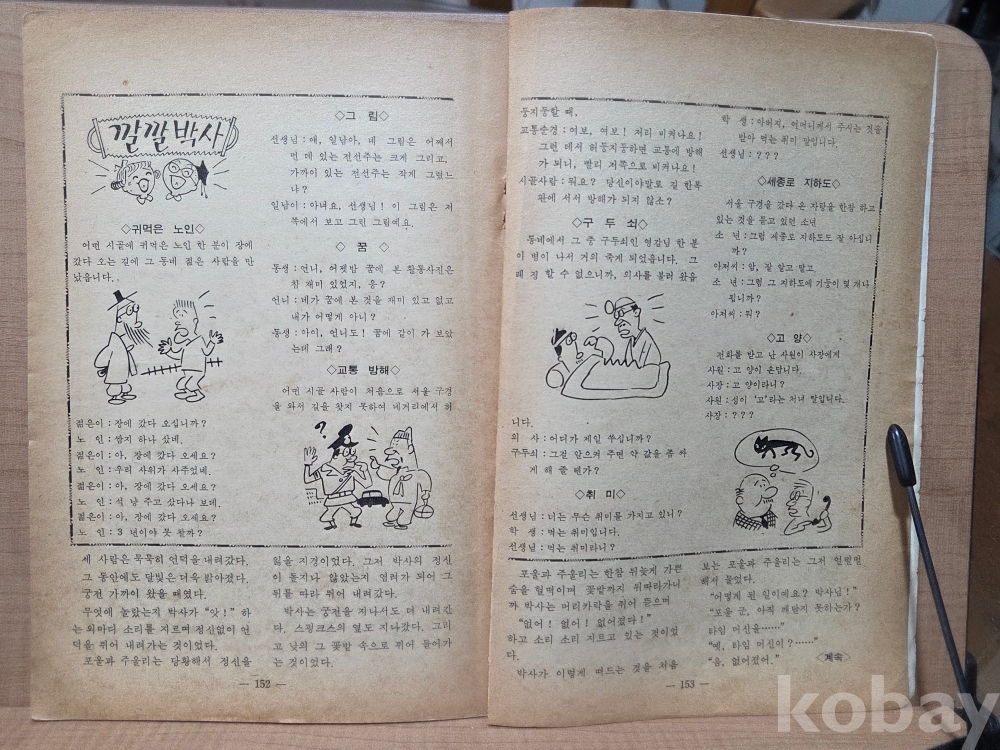 깔깔박사
◇귀먹은 노인◇
어떤 시골에 귀먹은 노인 한 분이 장에
갔다 오는 길에 그 동네 젊은 사람을 만
났읍니다.
젊은이 : 장에 갔다 오십니까?
노 인 : 쌈지 하나 샀네.
젊은이 : 아, 장에 갔다 오세요?
노 인 : 우리 사위가 사주었네.
젊은이 : 아, 장에 갔다 오세요?
노 인 : 석 냥 주고 샀다나 보데.
젊은이 : 아, 장에 갔다 오세요?
노 인 : 3 년이야 못 찰까?
◇그 림◇
선생님 : 얘, 일남아, 네 그림은 어째서
먼 데 있는 전선주는 크게 그리고,
가까이 있는 전선주는 작게 그렸느
냐?
일남이 : 아녀요, 선생님! 이 그림은 저
쪽에서 보고 그린 그림예요.
◇ 꿈 ◇
동생 : 언니, 어젯밤 꿈에 본 활동사진은
참 재미 있었지, 응?
언니 : 네가 꿈에 본 것을 재미 있고 없고
내가 어떻게 아니?
동생 : 아이, 언니도! 꿈에 같이 가 보았
는데 그래?
◇교통 방해◇
어떤 시골 사람이 처음으로 서울 구경
을 와서 길을 찾지 못하여 네거리에서 허
?
둥지둥할 때,
교통순경 : 여보, 여보! 저리 비켜나요!
그런 데서 허둥지둥하면 교통에 방해
가 되니, 빨리 저쪽으로 비켜나요!
시골사람 : 뭐요? 당신이야말로 길 한복
판에 서서 방해가 되지 않소?
◇구 두 쇠◇
동네에서 그 중 구두쇠인 영감님 한 분
이 병이 나서 거의 죽게 되었읍니다. 그
래 정 할 수 없으니까, 의사를 불러 왔읍
니다.
의 사 : 어디가 제일 쑤십니까?
구두쇠 : 그걸 알으켜 주면 약 값을 좀 싸
게 해 줄 텐가?
◇취 미◇
선생님 : 너는 무슨 취미를 가지고 있니?
학 생 : 먹는 취미입니다.
선생님 : 먹는 취미라니?
학 생 : 아버지, 어머니께서 주시는 것을
받아 먹는 취미 말입니다.
선생님 : ? ? ?
◇세종로 지하도◇
서울 구경을 갔다 온 자랑을 한참 하고
있는 것을 듣고 있던 소년
소 년 : 그럼 세종로 지하도도 잘 아십니
까?
아저씨 : 암, 잘 알고 말고.
소 년 : 그럼 그 지하도에 기둥이 몇 개나
됩니까?
아저씨 : 뭐?
◇고 양◇
전화를 받고 난 사원이 사장에게
사원 : 고 양이 온답니다.
사장 : 고양이라니?
사원 : 성이 '고'라는 처녀 말입니다.
사장 : ? ? ?
세 사람은 묵묵히 언덕을 내려갔다.
그 동안에도 달빛은 더욱 밝아졌다.
궁전 가까이 왔을 때였다.
무엇에 놀랐는지 박사가 "앗!" 하
는 외마디 소리를 지르며 정신없이 언
덕을 뛰어 내려가는 것이었다.
포울과 주울리는 당황해서 정신을
잃을 지경이었다. 그저 박사의 정신
이 돌지나 않았는지 염려가 되어 그
뒤를 따라 뛰어 내려갔다.
박사는 궁전을 지나서도 더 내려갔
다. 스핑크스의 옆도 지나갔다. 그리
고 낮의 그 꽃밭 속으로 뛰어 들어가
는 것이었다.
— 152 —
포울과 주울리는 한참 뒤늦게 가쁜
숨을 헐떡이며 꽃밭까지 뒤따라가니
까 박사는 머리카락을 쥐어 뜯으며
"없어! 없어! 없어졌다!"
하고 소리 소리 지르고 있는 것이었
다.
박사가 이렇게 떠드는 것을 처음
보는 포울과 주울리는 그저 얼떨떨
해서 물었다.
"어떻게 된 일이에요? 박사님!"
"포울 군, 아직 깨닫지 못하는가?
타임 머신을……"
"옛, 타임 머신이?……"
"음, 없어졌어." <계속>
— 153 —
kobay